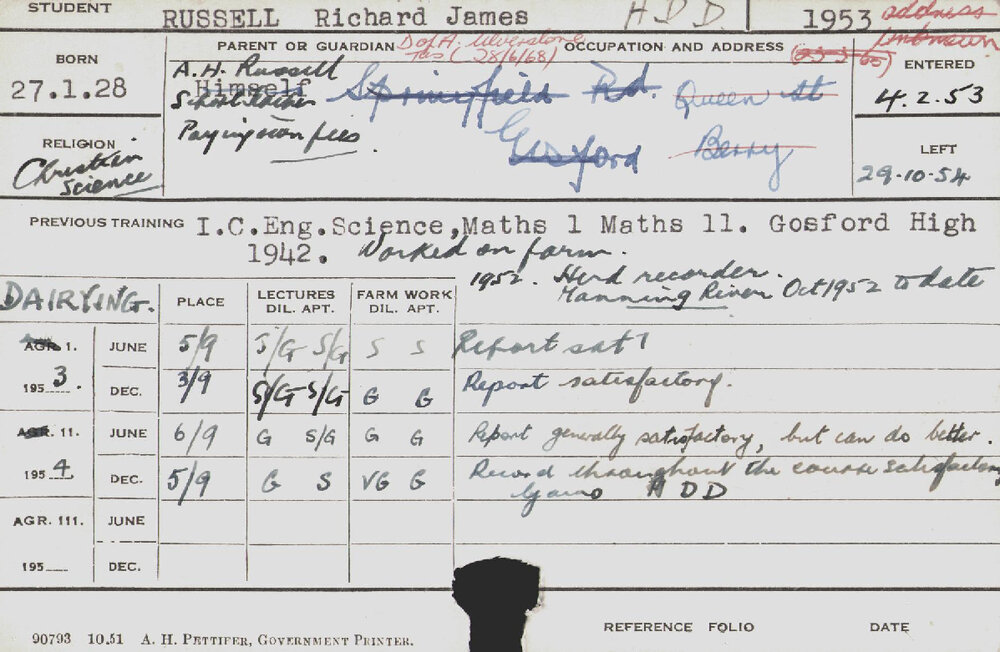 STUDENT RUSSELL Richard James H D D 1953 address unknown
PARENT OR GUARDIAN D of A. Ulverstone Tas (28/6/68) OCCUPATION AND ADDRESS
BORN 27.1.28
A. H. Russell
Himself
School Teacher
Paying own fees.
Springfield Rd.
Gosford
Queen St
Berry
ENTERED
4.2.53
RELIGION
Christian Science
LEFT
29-10-54
PREVIOUS TRAINING I.C.Eng.Science,Maths 1 Maths 11. Gosford High
1942. Worked on farm.
1952. Herd recorder.
Manning River Oct 1952 to date
DAIRYING. PLACE LECTURES DIL. APT. FARM WORK DIL. APT.
AGR 1. JUNE 5/9 S/G S/G S S Report sat
195 3. DEC. 3/9 S/G S/G G G Report satisfactory.
AGR. 11. JUNE 6/9 G S/G G G Report generally satisfactory, but can do better.
195 4 DEC. 5/9 G S VG G Record throughout the course satisfactory
Gains H D D
AGR. 111. JUNE
195 DEC.
REFERENCE FOLIO DATE
90793 10.51 A. H. PETTIFER, GOVERNMENT PRINTER.